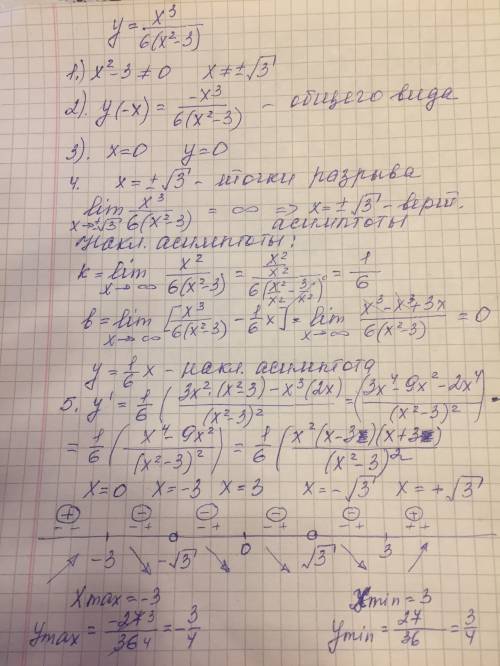 y = x³/(6(x²-3))
1.) x²-3≠0 x≠±√3
2). y(-x) = -x³/(6(x²-3)) - общего вида
3). x=0 y=0
4. x=±√3 - точки разрыва
lim x→±√3 x³/(6(x²-3)) = ∞ => x=±√3 - верт. асимптоты
Накл. асимптоты:
k = lim x→∞ x²/(6(x²-3)) = (x²/x²)/(6(x²/x² - 3/x²)) = 1/6
b = lim x→∞ [x³/(6(x²-3)) - 1/6 x] = lim x→∞ (x³-x³+3x)/(6(x²-3)) = 0
y = 1/6 x - накл. асимптота
5. y' = 1/6 ((3x²·(x²-3) - x³(2x))/(x²-3)²) = ((3x⁴-9x²-2x⁴)/(x²-3)²) =
= 1/6 ((x⁴-9x²)/(x²-3)²) = 1/6 (x²(x-3)(x+3)/(x²-3)²)
x=0 x=-3 x=3 x=-√3 x=+√3
+ - - - - +
-- -+ -+ -+ -+ ++
-3 -√3 0 √3 3
Xmax = -3 Xmin = 3
Ymax = -27 3/36 4 = -3/4 Ymin = 27/36 = 3/4